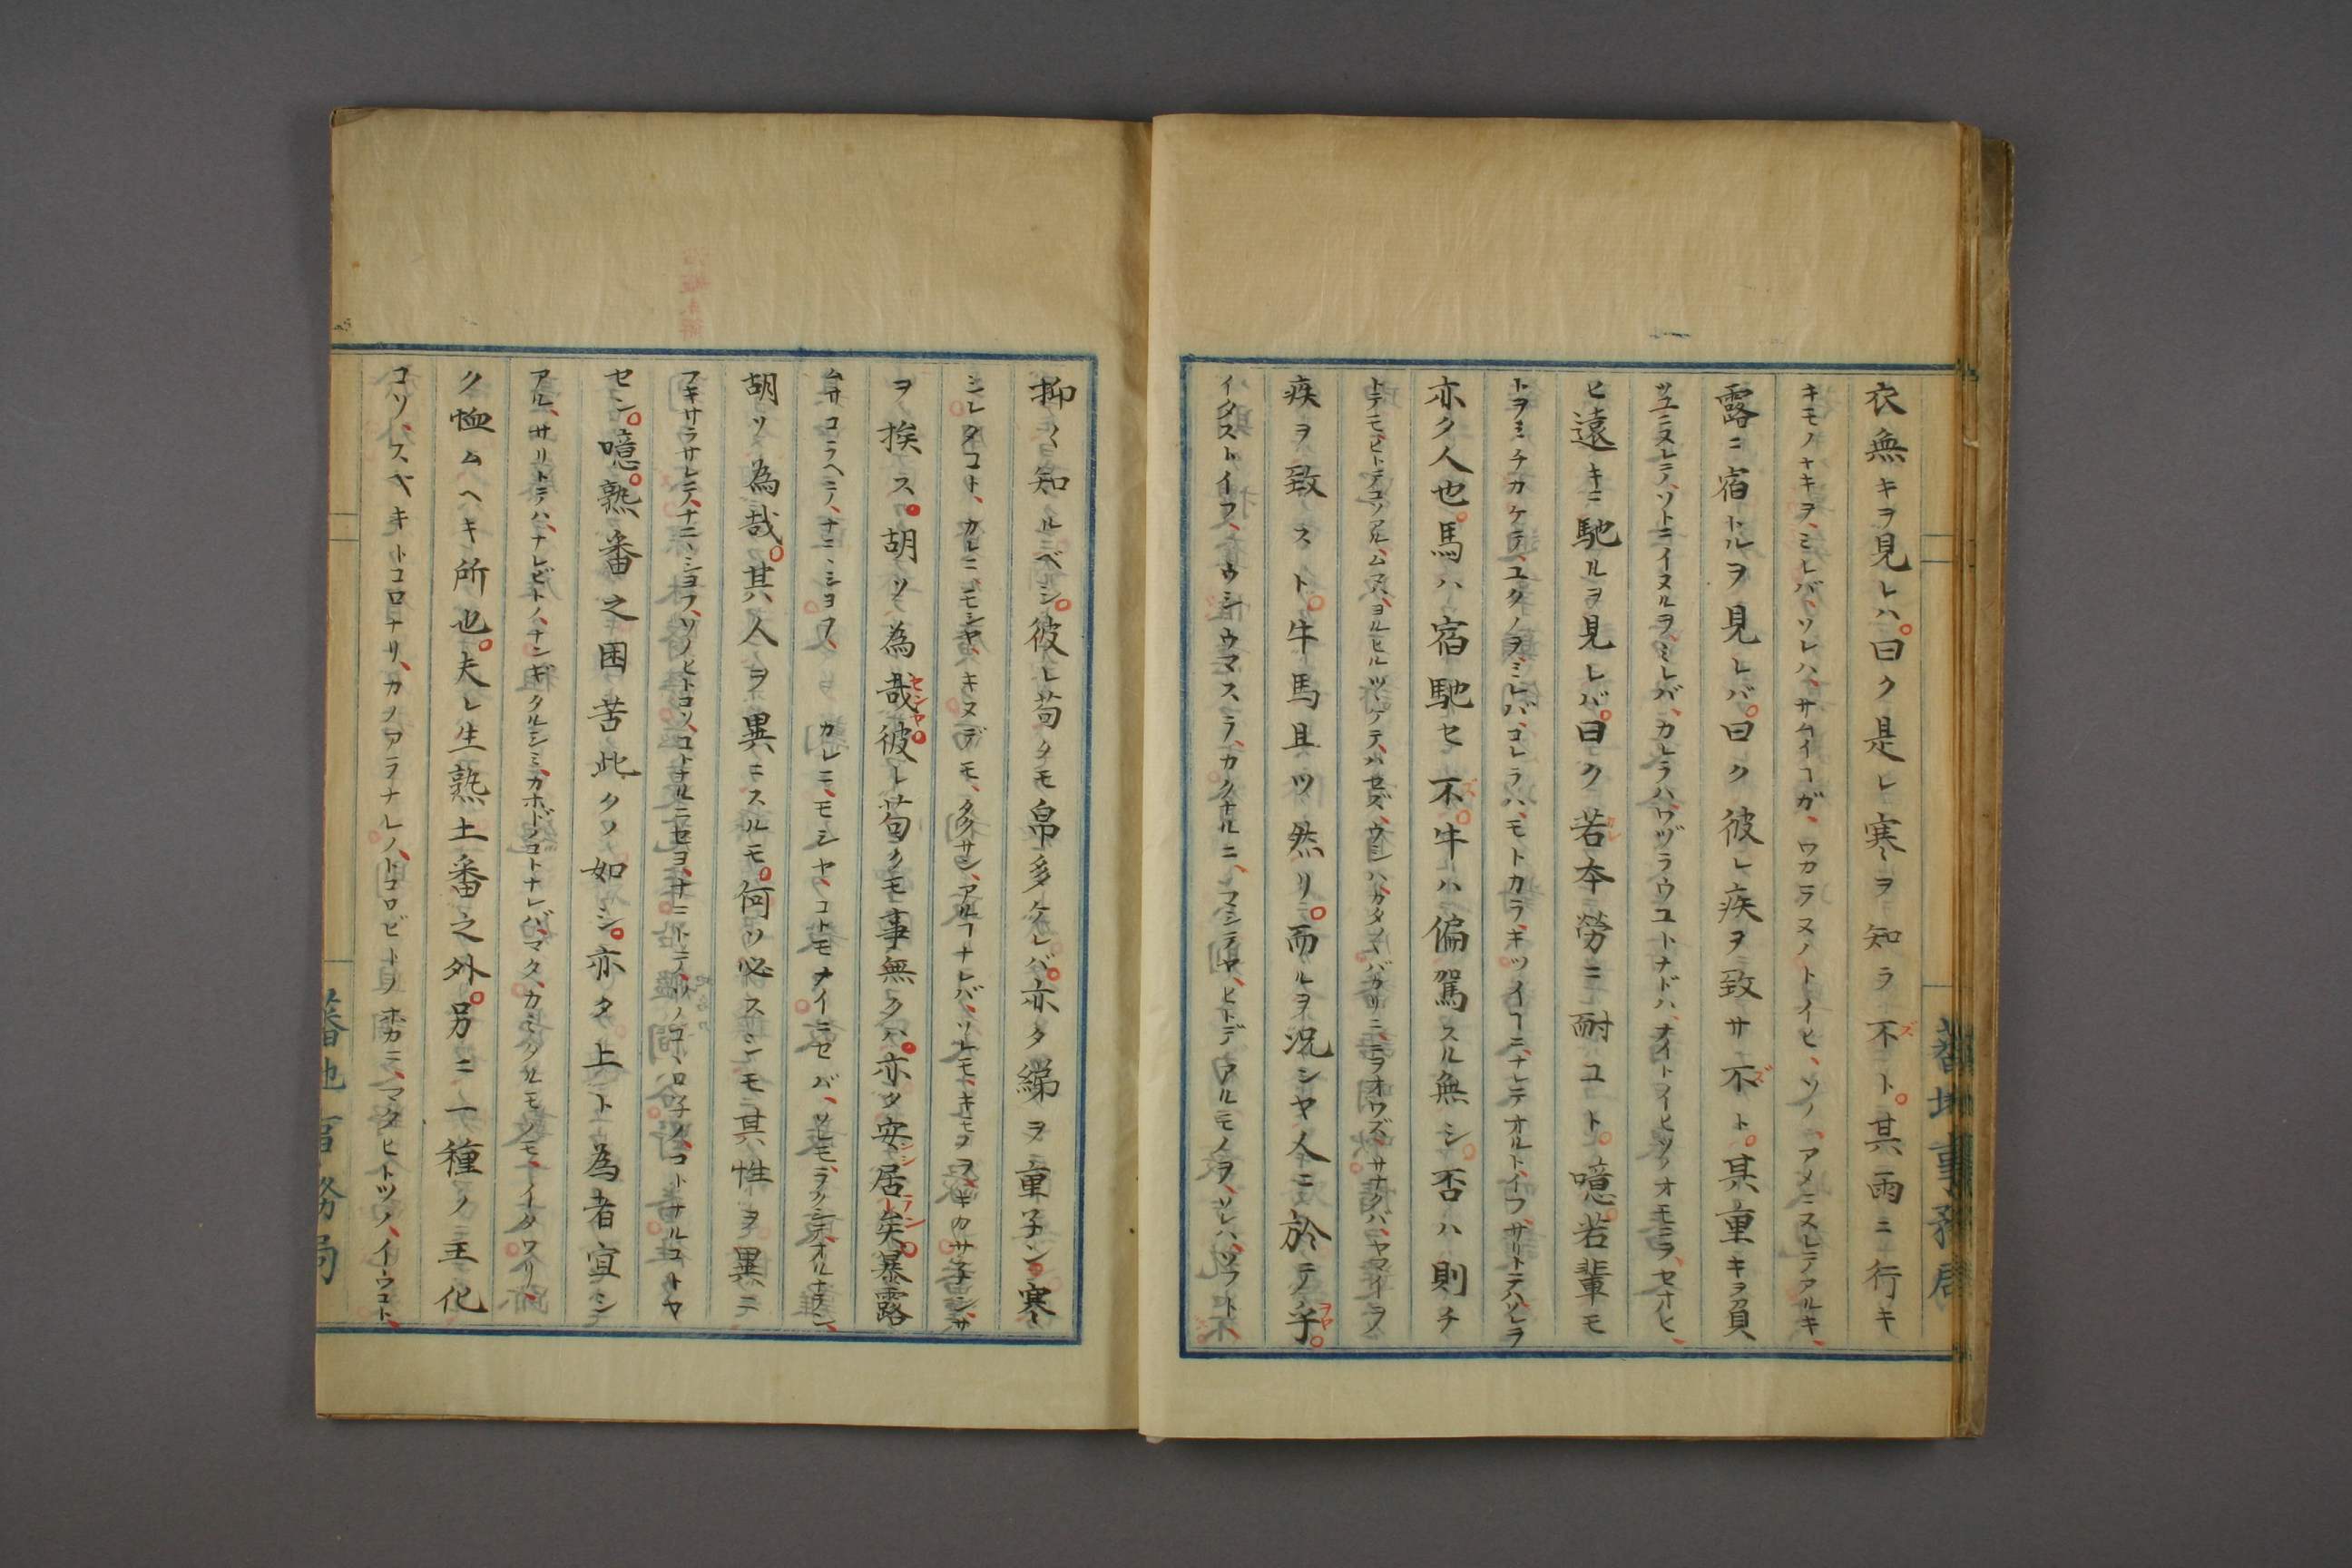 衣無キヲ見レハ曰ク是レ寒ヲ知ラ不ズト其雨ニ行キ
キモノナキヲ、ミレバ、ソレハ、サムイコガ、ワカラヌノトイヒ、ソノ、アメニヌレテアルキ、
露ニ宿トルヲ見レバ曰ク彼レ疾ヲ致サ不ズト其重キヲ負
ツユニヌレテ、ソトニイヌルヲ、ミレバ、カレラハ、ワヅラウユトナドハ、ナイトイヒツ、オモニヲ、セオヒ、
ヒ遠キニ馳ルヲ見レバ曰ク若本勞ニ耐ユト噫若輩モ
トヲミチカケテ、ユクノヲ、ミレバ、コレラハ、モトカラ、キツイコニ、ナレテオルト、イフ、サリトテハ、ソレラ
亦ク人也馬ハ宿馳セ不ズ牛ハ偏駕スル無シ否ハ則チ
トテモ、ヒトデコソアル、ムマハ、ヨルヒルツヾケテ、ハセズ、ウシハ、カタノバカリニ、ニヲオワズ、サナクハ、ヤマイヲ
疾ヲ致スト牛馬且ツ然リ而ルヲ況シヤ人ニ於テヲ乎ヲヤ
イタストイフ、ウシウマス、ラ、カクナルニ、マシテヤ、ヒトデアルモノヲ、ソレハ、ソフト、
蕃地事務局
抑〻知ルベシ彼レ苟クモ帛多ケレバ亦タ綈ヲ重子ン寒
シレタコト、カレニ、モシヤ、キヌデモ、タクサン、アルコナレバ、ソレモ、キモヲ、キカサ子ン、サ
ヲ挨ス胡ソ為哉セシヤ彼レ苟クモ事無クハ亦タ安シ居ラン矣暴露
ムサコラヘテ、ナニヽシヨフ、カレモ、モシヤ、コトモナイニセバ、ソレモ、ラクシテ、オルナラン、
胡ソ為哉其人ヲ異ニスルモ何ソ必スシモ其性ヲ異ニ
フキサラサレテ、ナニヽシヨフ、ソノヒトコソ、コトナルニセヨ、ナニトテ、ソノコヽロ子ノ、コトナルコトヤ
セン噫熟番之困苦此クノ如シ亦タ上ト為者宜シ
アル、サリトテハ、ナレビトノ、ナンギクルシミ、カホドノコトナレバ、マタ、カミタルモノモ、イタワリ、
ク恤ムヘキ所也夫レ生熟土番之外另ニ一種ノ王化
コソ、スベキトコロナリ、カノアラナレノ、トコロビトノホカニ、マタヒトツノ、イウコト、
蕃地事務局